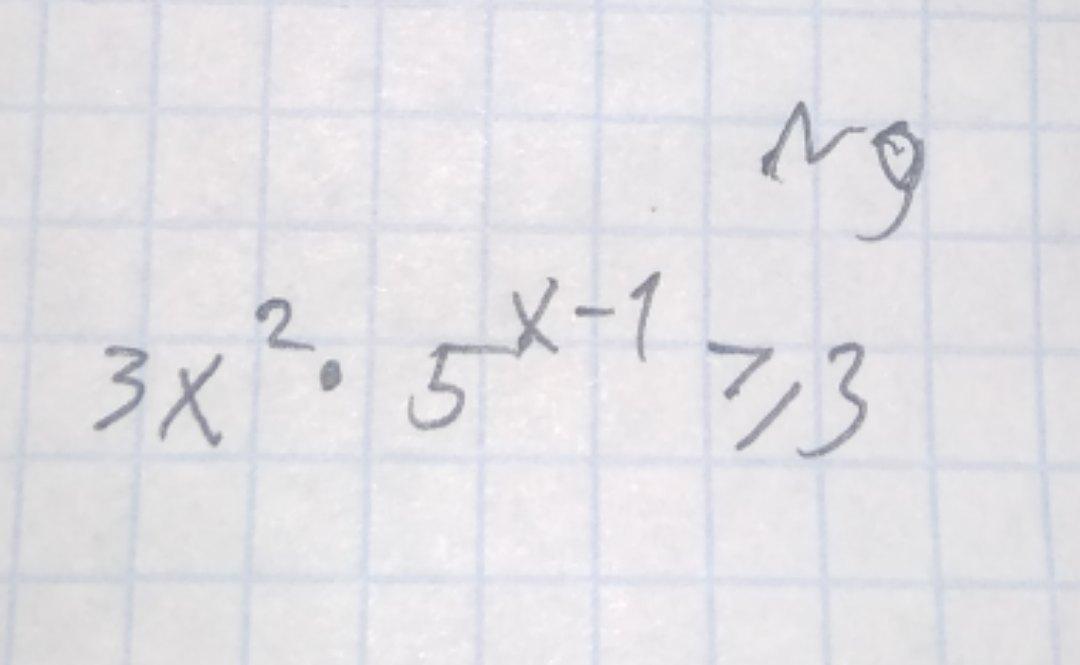 №9
3x²· 5^{x-1} ⩾ 3